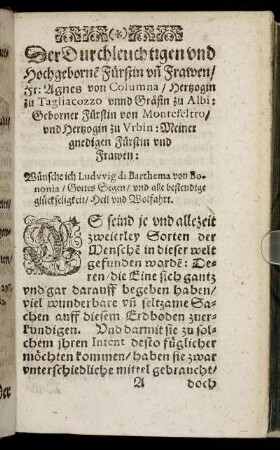 Der Durchleuchtigen vnd
Hochgebornẽ Fürstin vñ Frawen/
Fr: Agnes von Columna/ Hertzogin
zu Tagliacozzo vnnd Gräfin zu Albi:
Geborner Fürstin von Montefeltro/
vnd Hertzogin zu Vrbin: Meiner
gnedigen Fürstin vnd
Frawen:
Wünsche ich Ludvvig di Barthema von Bo-
nonia/ Gottes Segen/ vnd alle bestendige
glückseligkeit/ Heil vnd Wolfahrt.
ES seind je vnd allezeit
zweierley Sorten der
Menschẽ in dieser welt
gefunden wordẽ: De-
ren/ die Eine sich gantz
vnd gar darauff begeben haben/
viel wunderbare vñ seltzame Sa-
chen auff diesem Erdboden zuer-
kundigen. Vnd darmit sie zu sol-
chem jhren Intent desto füglicher
möchten kommen/ haben sie zwar
vnterschiedliche mittel gebraucht/
A doch